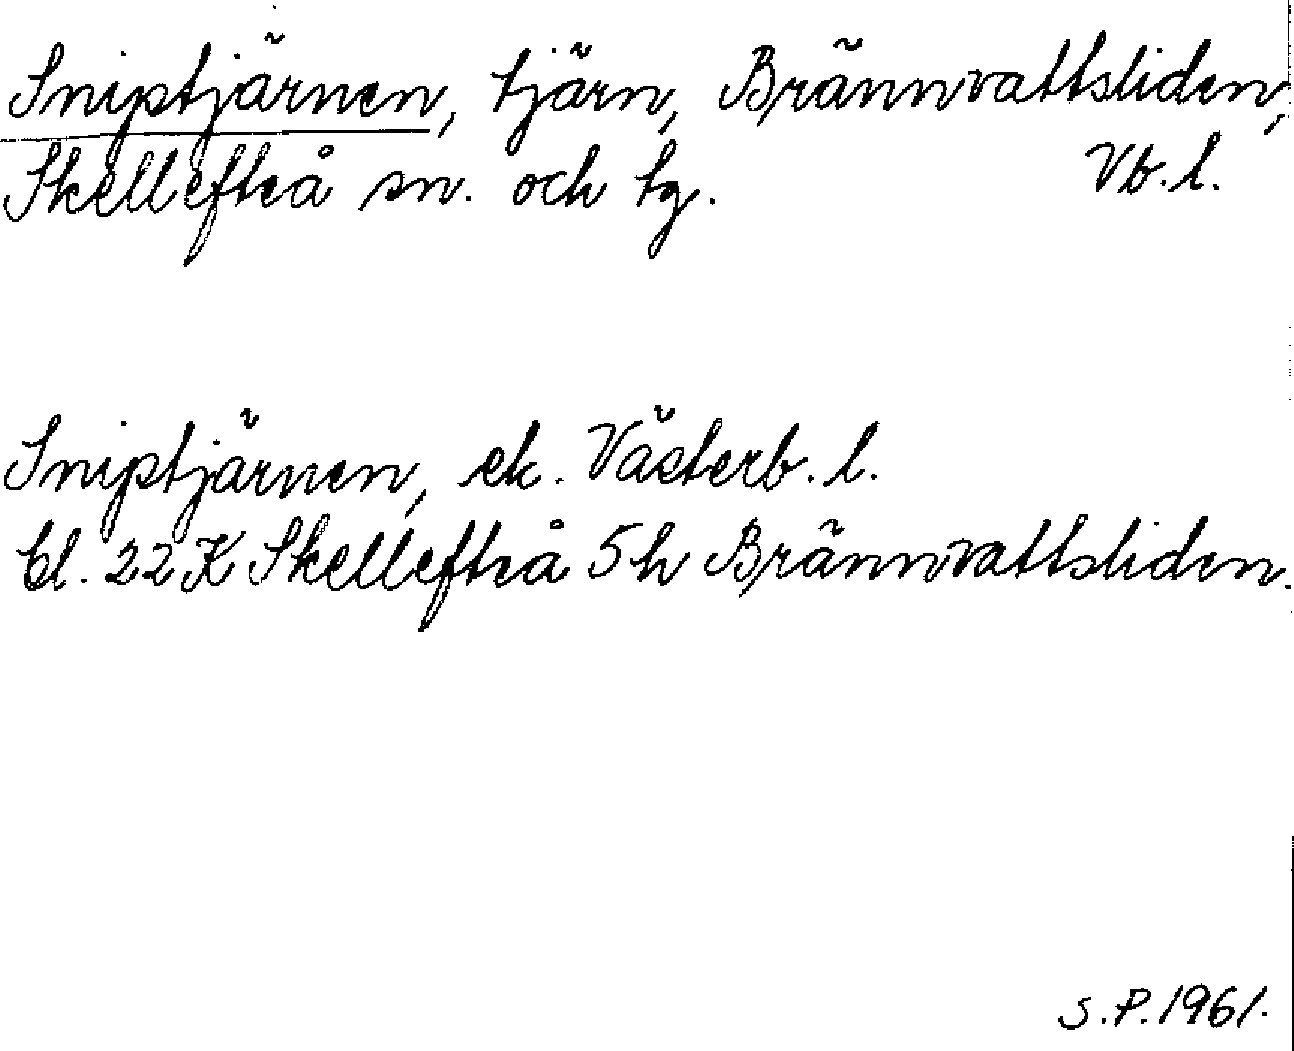 Sniptjärnen, tjärn, Brännvattsliden,
Skellefteå sn. och tg. Vb. l.
Sniptjärnen, ek. Västerb. l.
bl. 22 K Skellefteå 5 h Brännvattsliden.
S. P. 1961.